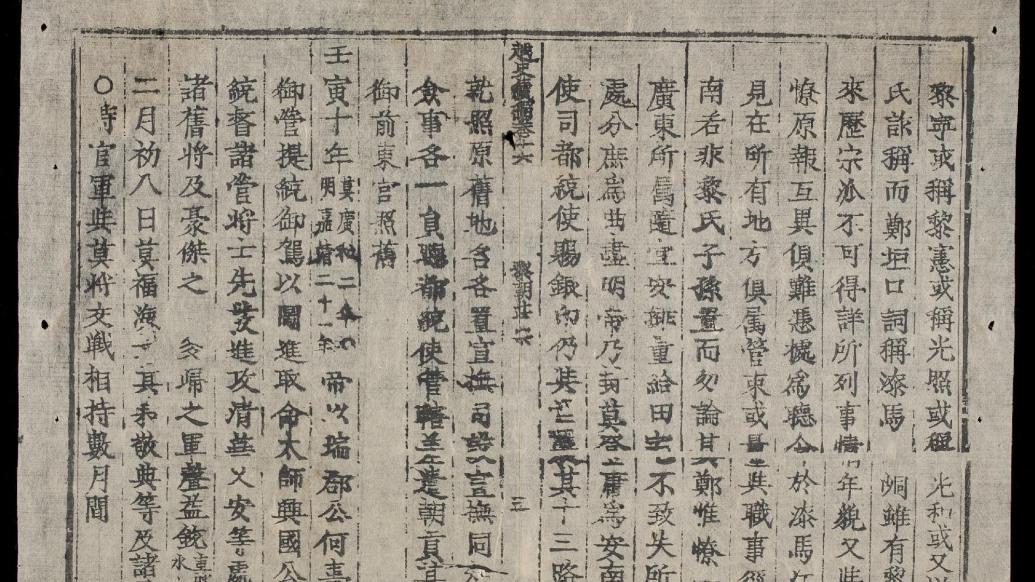 黎寧或稱黎憲或稱光照或稱 光和或又
氏訴稱而鄭垣口詞稱漆馬 峒雖有黎
來歷宗派不可得詳所列事情年貌又
憭原報互異俱難憑據爲聽令於漆馬江
見在所有地方俱属管束或量與職事
南若非黎氏子孫置而勿論其鄭惟憭
廣東所属隨宜安挿重給田土不致失所
處分庶爲曲盡明帝乃封莫登庸爲安南
使司都統使賜銀印仍其 其十三路
越史續編卷之六
黎朝莊六
三
乾照原舊地名各置宣撫司設宣撫同
僉事各一員聽都統使管轄 遞朝貢其
御前東宮照舊
壬寅十年莫廣和二年明嘉靖二十一年 帝以瑞郡公何壽
御營提統御駕以闘進取命太師興國公
統督諸營將士先發進攻清華乂安等處
諸舊將及豪傑之 多歸之軍聲益銳
二月初八日莫福海 其和敬典等及諸
○時官軍與莫將交戰相持數月間